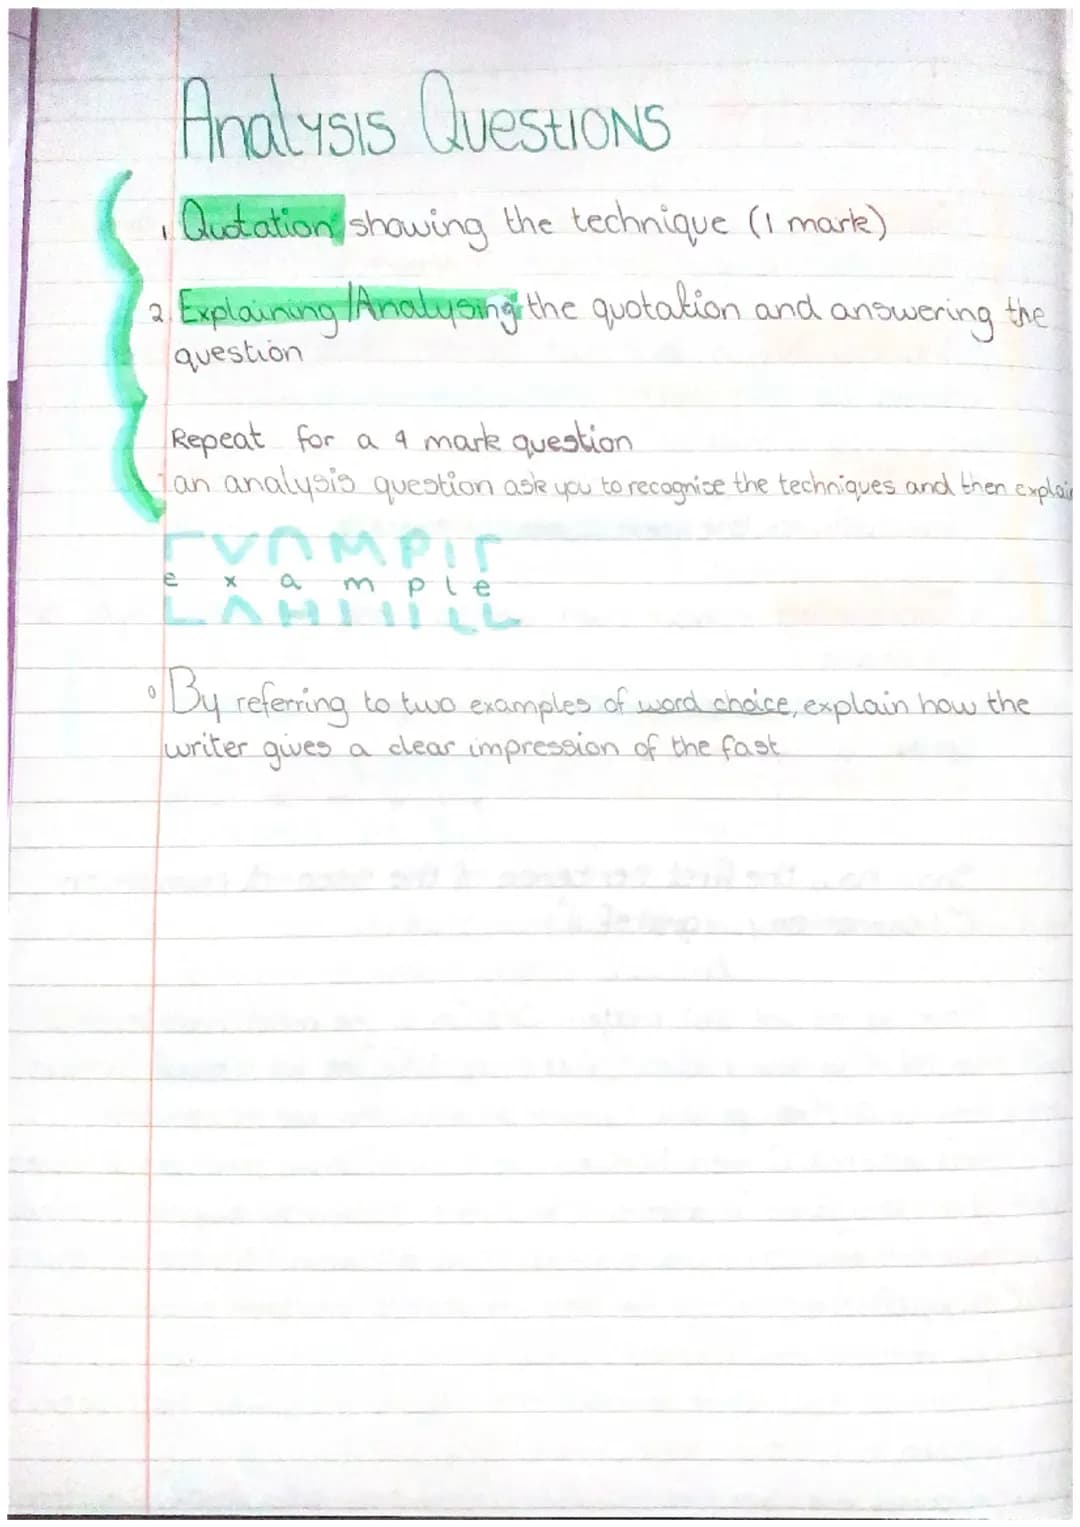 Analysis Questions
1. Quotation showing the technique (1 mark)
2. Explaining/Analysing the quotation and answering the
question
Repeat for a 4 mark question
an analysis question ask you to recognise the techniques and then explain
example
By referring to two examples of word choice, explain how the
writer gives a clear impression of the fast